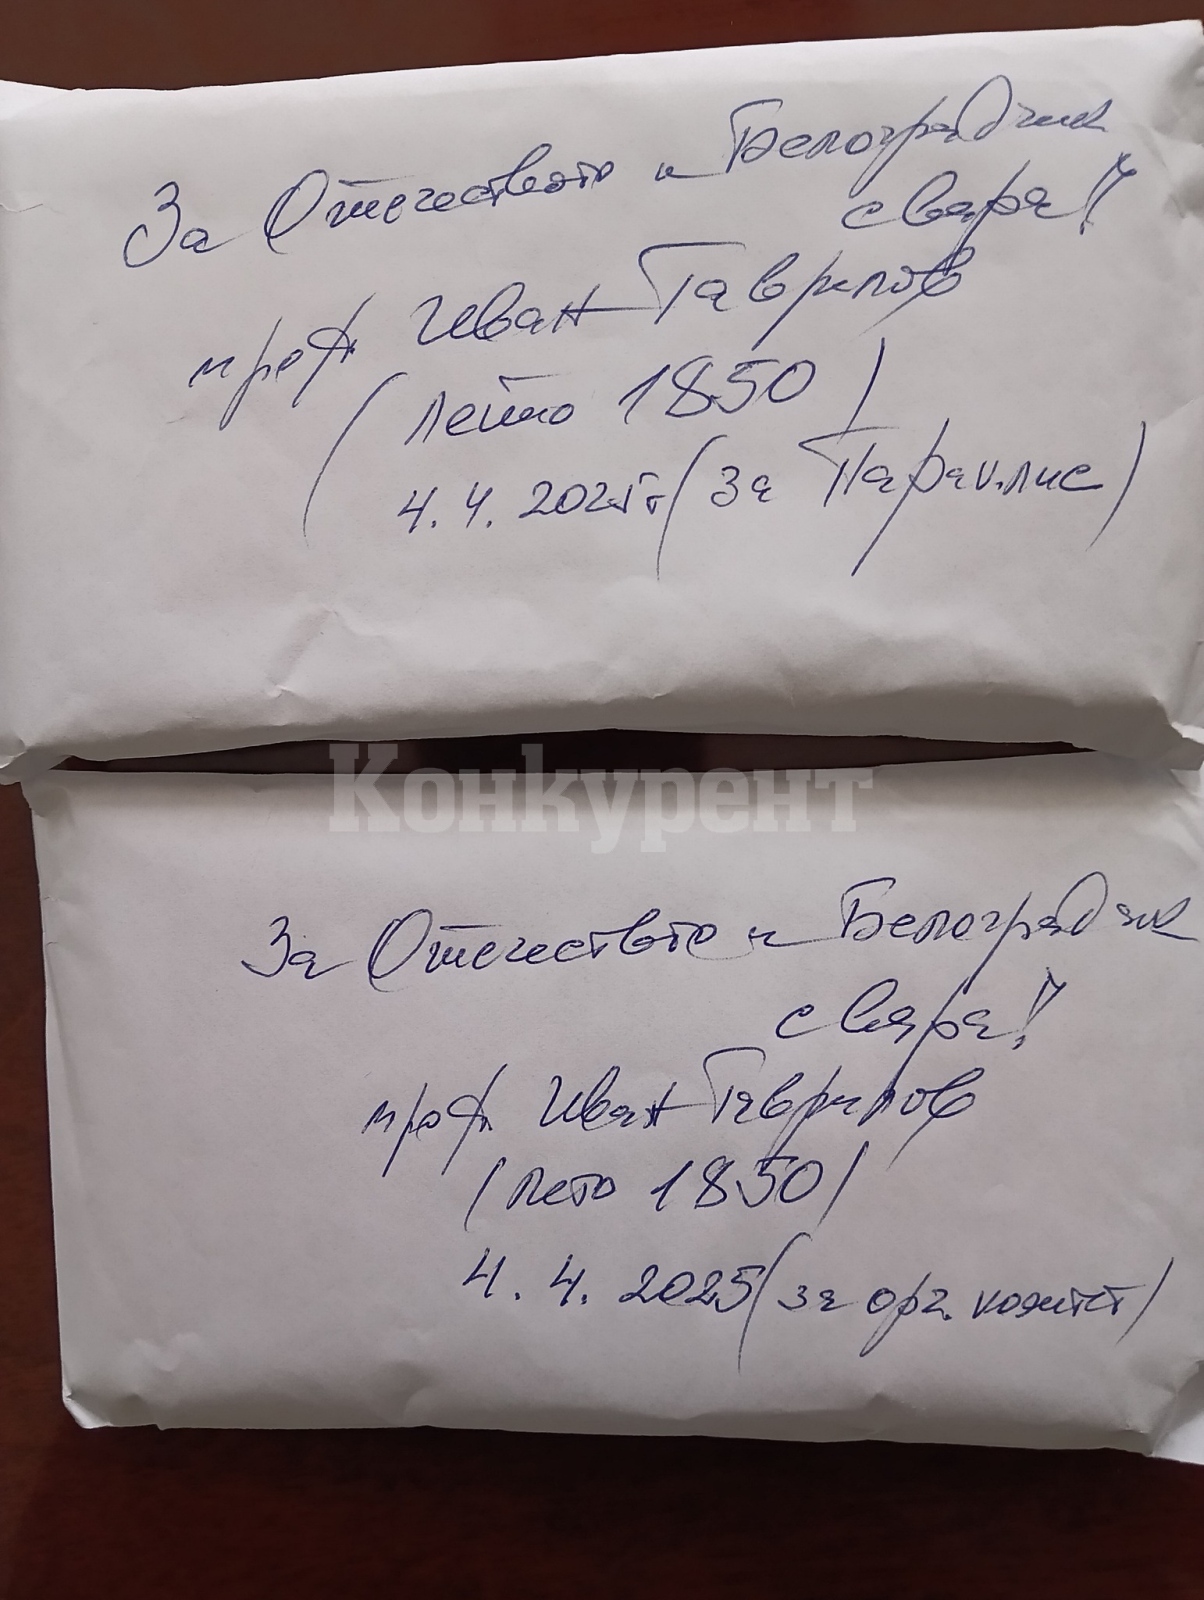 За Отечеството и Белоградчик
с вяра!
проф Иван Гаврилов
(лето 1850)
4.4.2025г (за Параклис)
Конкурент
За Отечеството и Белоградчик
с вяра!
проф Иван Гаврилов
(лето 1850)
4.4.2025 (за орг. комитет)